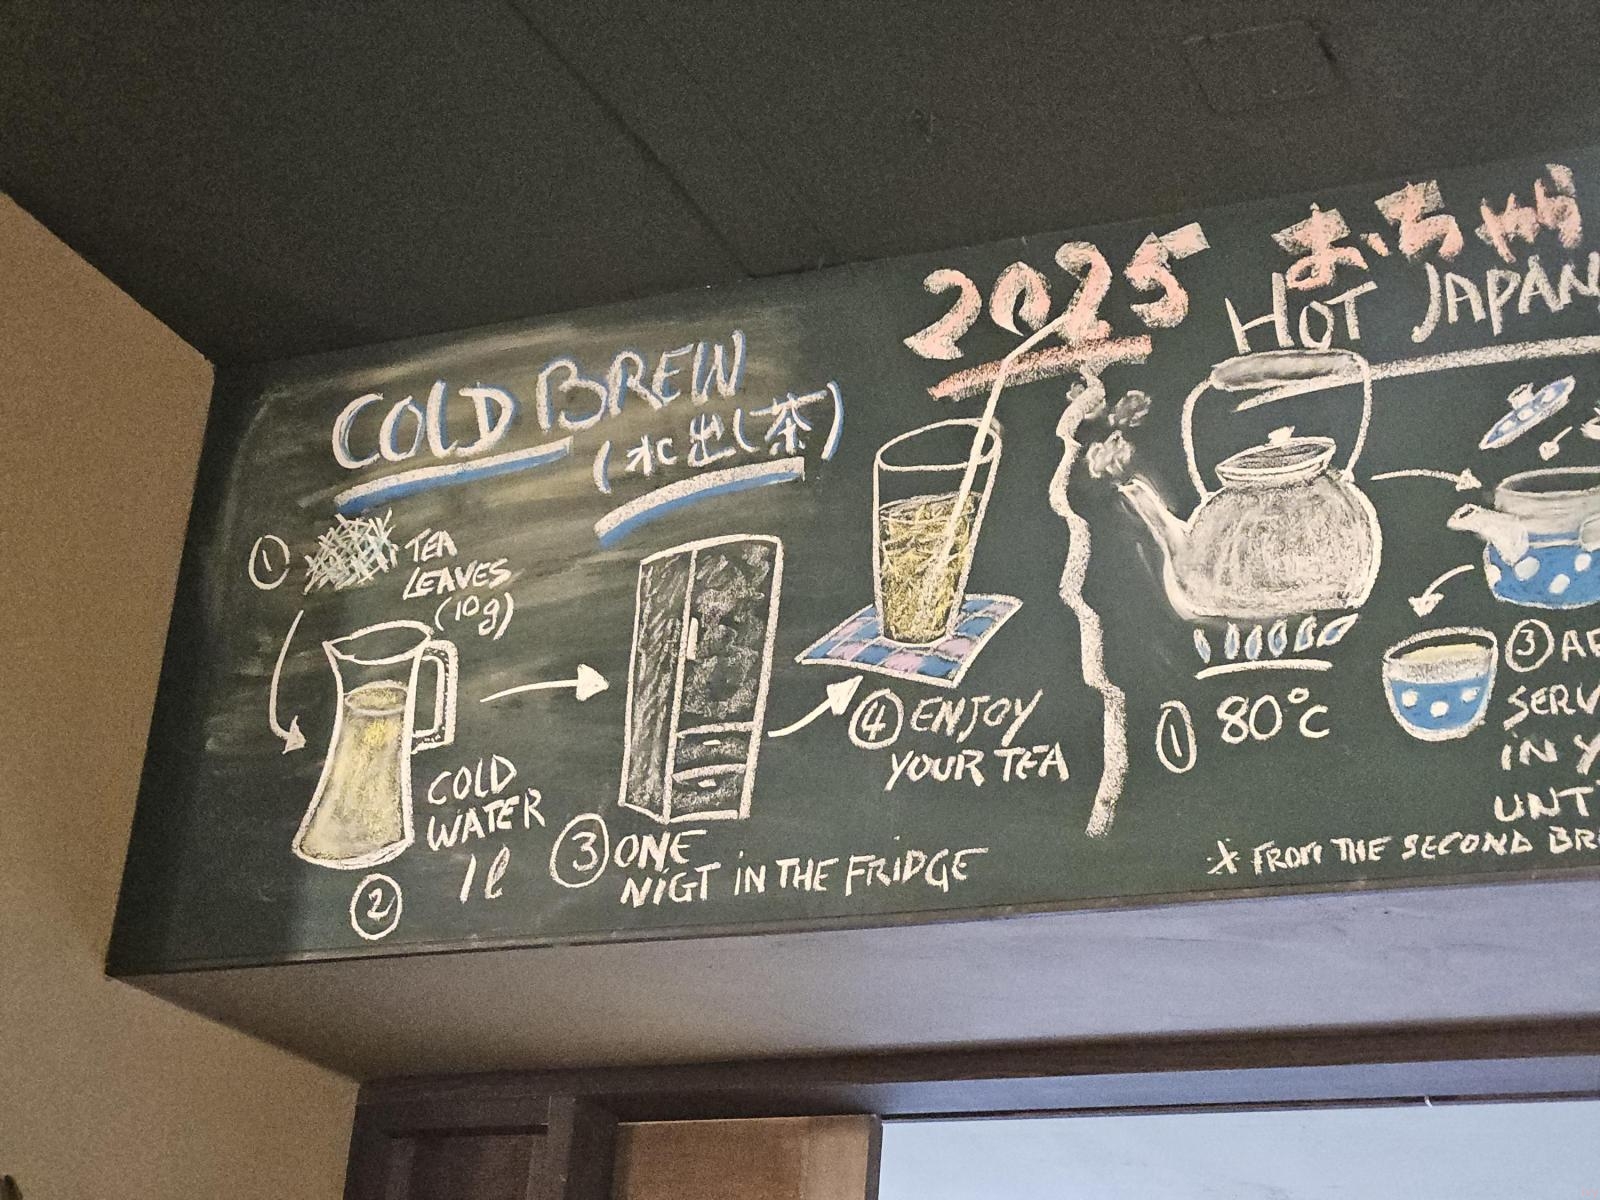 COLD BREW
(水出し茶)
① TEA
LEAVES
(10g)
COLD
WATER
1ℓ
②
③ ONE
NIGT IN THE FRIDGE
④ ENJOY
YOUR TEA
2025
おちゃ
HOT JAPAN
① 80°C
③
SERV
IN Y
UNT
* FROM THE SECOND BR